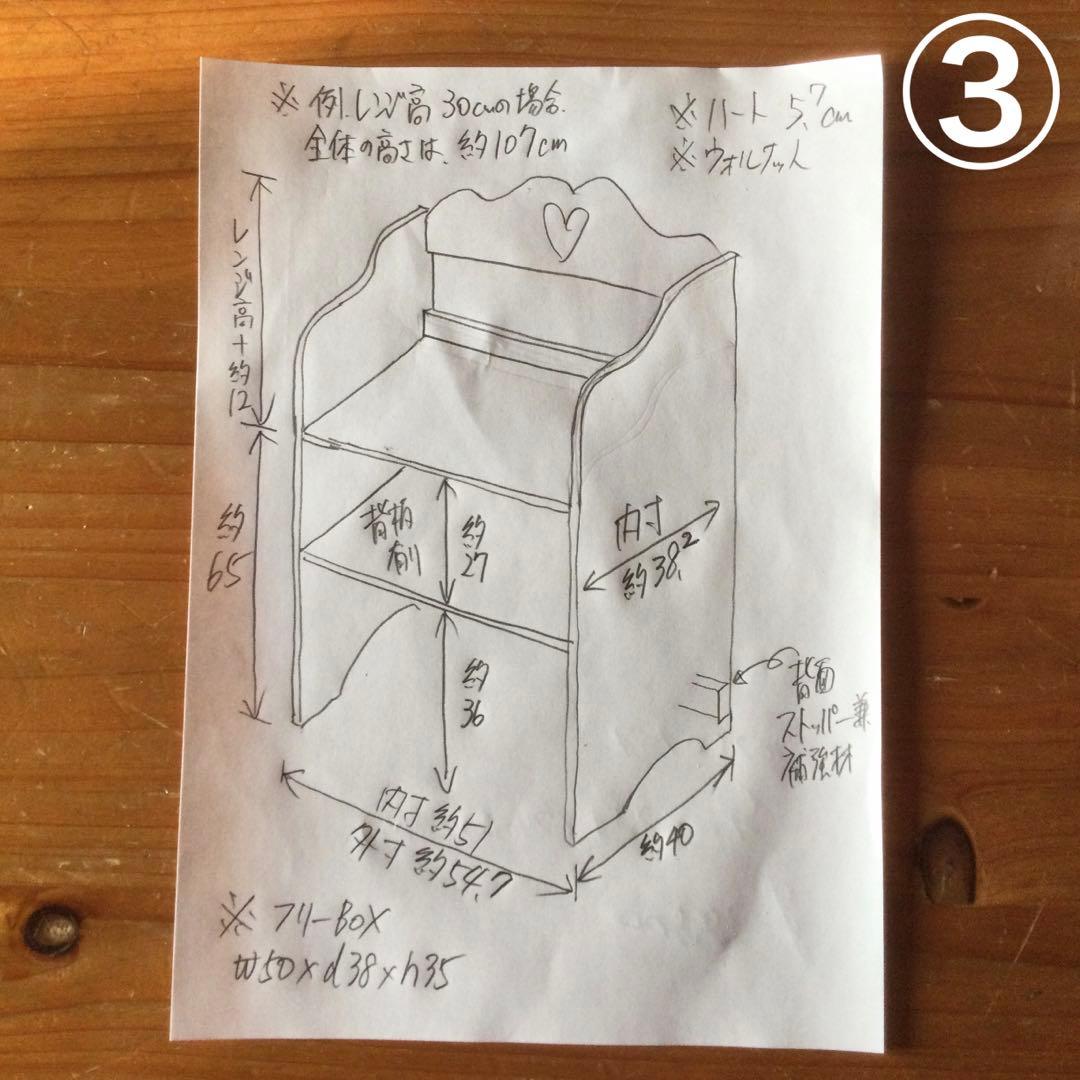 ③
※ 例.レンジ高 30cmの場合.
全体の高さは、約107cm
※ ハート 5.7cm
※ ウォルナット
レンジ高+約12
約65
背板有り
約27
内寸
約38.2
約36
背面
ストッパー兼
補強材
内寸 約51
外寸 約54.7
約40
※ フリーBOX
W50×d38×h35